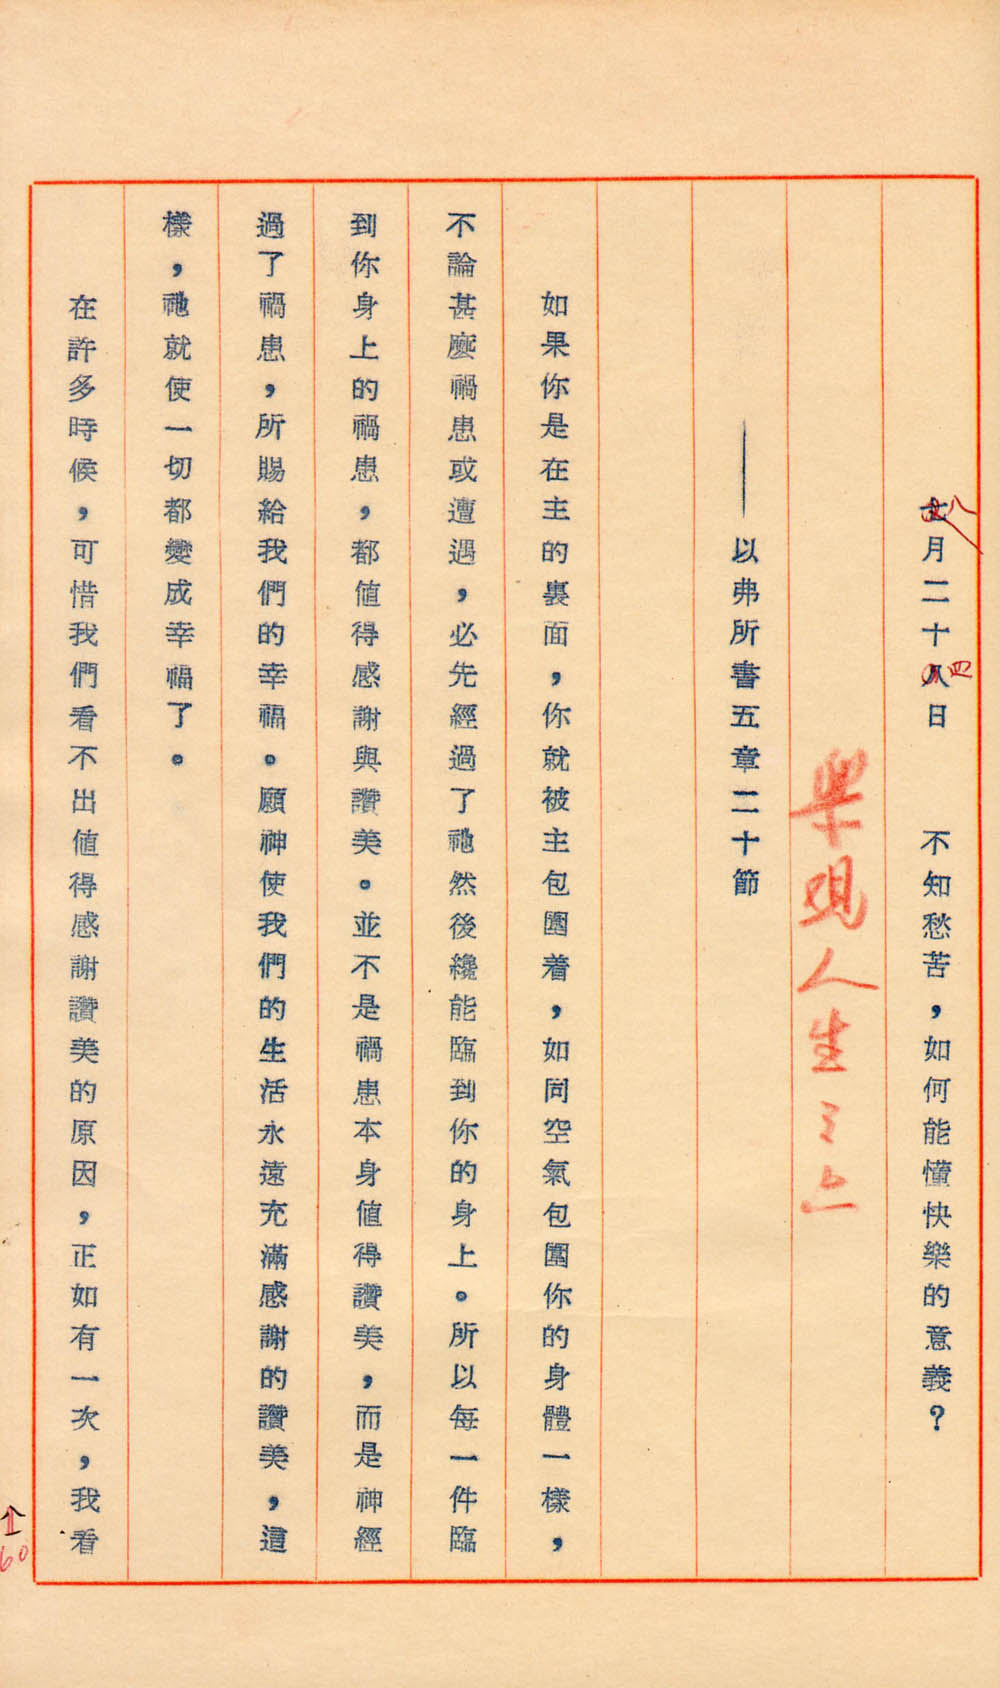 七八月二十八四日　不知愁苦，如何能懂快樂的意義？
樂观人生之上
——以弗所書五章二十節
如果你是在主的裏面，你就被主包圍着，如同空氣包圍你的身體一樣，
不論甚麼禍患或遭遇，必先經過了祂然後纔能臨到你的身上。所以每一件臨
到你身上的禍患，都値得感謝與讚美。並不是禍患本身値得讚美，而是神經
過了禍患，所賜給我們的幸福。願神使我們的生活永遠充滿感謝的讚美，這
樣，祂就使一切都變成幸福了。
在許多時候，可惜我們看不出値得感謝讚美的原因，正如有一次，我看
60